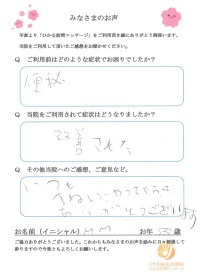 みなさまのお声
平素より「ひかる訪問マッサージ」をご利用頂き誠にありがとう御座います。
当院をご利用して頂いたご感想をお聞かせください。
Q ご利用前はどのような症状でお困りでしたか？
便秘
Q 当院をご利用されて症状はどうなりましたか？
改善された
Q その他当院へのご感想、ご意見など。
いつも
ていねいにやってもらって
ありがとうございます
お名前（イニシャル） M M お年 歳
ご協力ありがとうございました。これからもみなさまのお声を励みに日々精進して
参りますので今後ともよろしくお願いします。